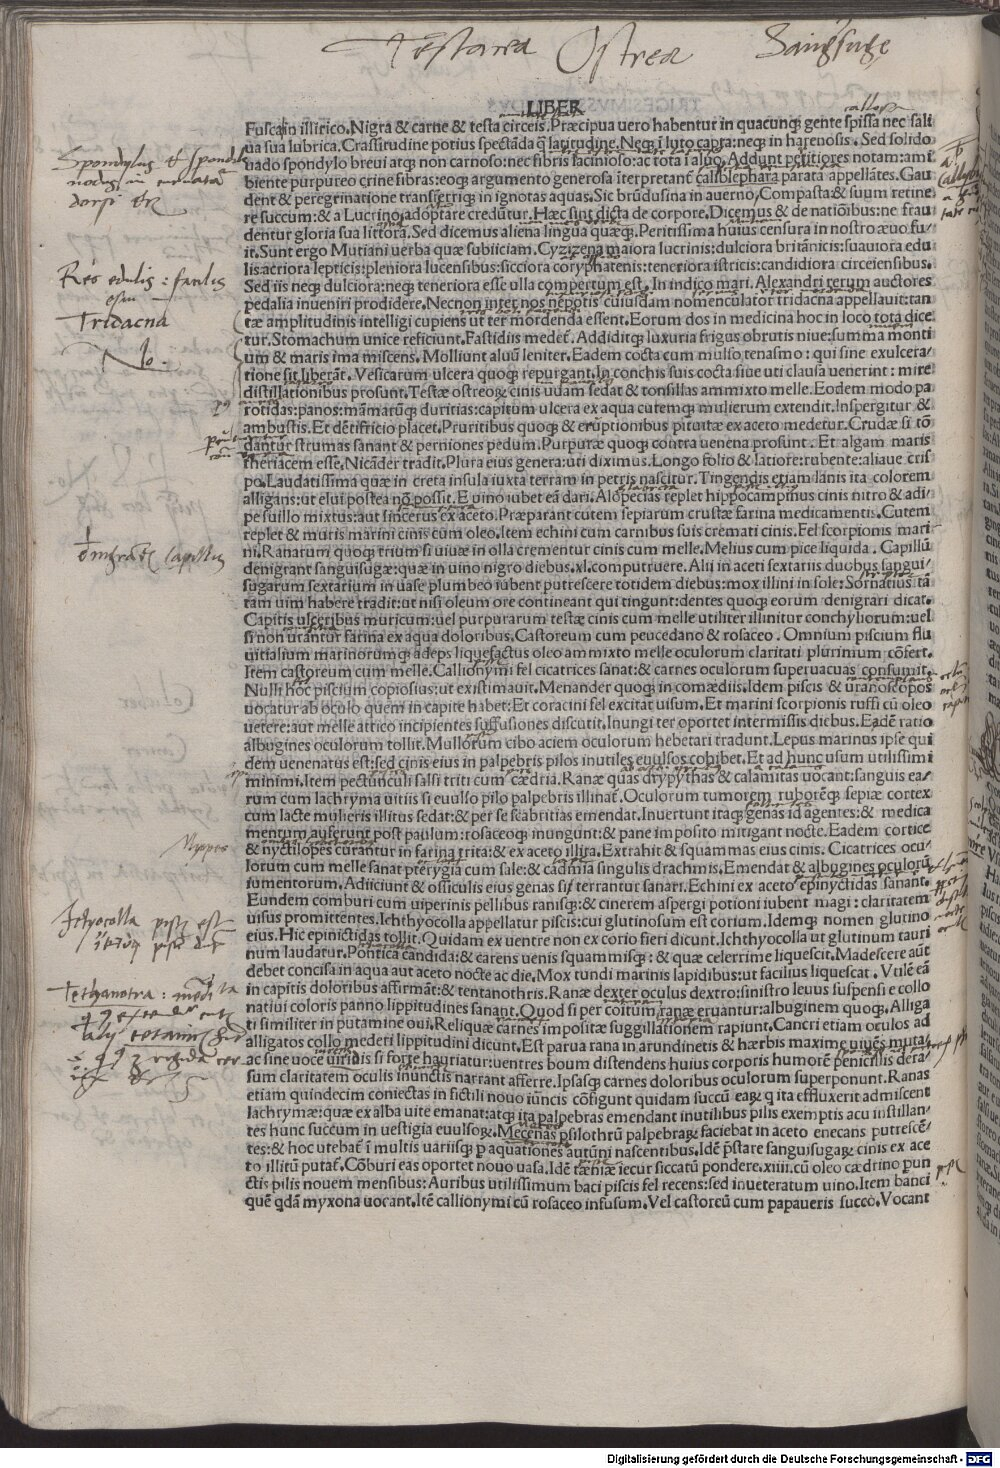 Testacea Ostrea Sanguisuge
LIBER
Fusca in illirico. Nigra & carne & testa circeis. Præcipua uero habentur in quacunq; gente spissa nec sali
ua sua lubrica. Crassitudine potius spectāda q̄ latitudine. Neq; ī luto capta: neq; in harenosis. Sed solido
uado spondylo breui atq; non carnoso: nec fibris lacinioso: ac tota ī aluo. Addunt petitiores notam: ami
biente purpureo crine fibras: eoq; argumento generosa īterpretant̄ calliblephara parata appellātes. Gau
dent & peregrinatione transferriq; in ignotas aquas. Sic brūdusina in auerno, Compasta & suum retine
re succum: & a Lucrino adoptare credūtur. Hæc sint dicta de corpore. Dicemus & de natiōibus: ne frau/
dentur gloria sua littora. Sed dicemus aliena lingua quæq;. Peritissima huius censura in nostro æuo fu/
it. Sunt ergo Mutiani uerba quæ subiiciam. Cyzizena maiora lucrinis: dulciora britānicis: suauiora edu
lis: acriora lepticis: pleniora lucensibus: sicciora coryphatenis: teneriora istricis: candidiora circeiensibus.
Sed iis neq; dulciora: neq; teneriora esse ulla compertum est. In indico mari. Alexandri rerum auctores
pedalia inueniri prodidere. Necnon inter nos nepotis cuiusdam nomenclator tridacna appellauit: tan
tæ amplitudinis intelligi cupiens ut ter mordenda essent. Eorum dos in medicina hoc in loco tota dice
tur. Stomachum unice reficiunt. Fastidiis medet̄. Addiditq; luxuria frigus obrutis niue: summa monti
um & maris ima miscens. Molliunt aluū leniter. Eadem cocta cum mulso tenasmo: qui sine exulcera/
tione sit liberāt. Vesicarum ulcera quoq; repurgant. In conchis suis cocta siue uti clausa uenerint: mire
distillationibus prosunt. Testæ ostreoꝝ cinis uuam sedat & tonsillas ammixto melle. Eodem modo pa
rotidas: panos: māmarūq; duritias: capitum ulcera ex aqua cutemq; mulierum extendit. Inspergitur &
ambustis. Et dētifricio placet. Pruritibus quoq; & eruptionibus pituitæ ex aceto medetur. Crudæ si tō
dantur strumas sanant & perniones pedum. Purpuræ quoq; contra uenena prosunt. Et algam maris
theriacem esse. Nicāder tradit. Plura eius genera: uti diximus. Longo folio & latiore: rubente: aliaue cris
po. Laudatissima quæ in creta insula iuxta terram in petris nascitur. Tingendis etiam lanis ita colorem
alligans: ut elui postea nō possit. E uino iubet eā dari. Alopecias replet hippocampinus cinis nitro & adi/
pe suillo mixtus: aut sincerus ex aceto. Præparant cutem sepiarum crustæ farina medicamentis. Cutem
replet & muris marini cinis cum oleo. Item echini cum carnibus suis cremati cinis. Fel scorpionis mari
ni. Ranarum quoq; trium si uiuæ in olla crementur cinis cum melle. Melius cum pice liquida. Capillū
denigrant sanguisugæ: quæ in uino nigro diebus. xl. computruere. Alii in aceti sextariis duobus sangui/
sugarum sextarium in uase plumbeo iubent putrescere totidem diebus: mox illini in sole: Sornatius tā
tam uim habere tradit: ut nisi oleum ore contineant qui tingunt: dentes quoq; eorum denigrari dicat.
Capitis ulceribus muricum: uel purpurarum testæ cinis cum melle utiliter illinitur conchyliorum: uel
si non utantur farina ex aqua doloribus. Castoreum cum peucedano & rosaceo. Omnium piscium flu
uitialium marinorumq; adeps liquefactus oleo ammixto melle oculorum claritati plurimum cōfert.
Item castoreum cum melle. Callionymi fel cicatrices sanat: & carnes oculorum superuacuas consumit.
Nulli hoc piscium copiosius: ut existimauit. Menander quoq; in comædiis. Idem piscis & uranoscopos
uocatur ab oculo quem in capite habet: Et coracini fel excitat uisum. Et marini scorpionis ruffi cū oleo
uetere: aut melle attico incipientes suffusiones discutit. Inungi ter oportet intermissis diebus. Eadē ratio
albugines oculorum tollit. Mullorum cibo aciem oculorum hebetari tradunt. Lepus marinus ipse qui
dem uenenatus est: sed cinis eius in palpebris pilos inutiles euulsos cohibet. Et ad hunc usum utilissimi
minimi. Item pectunculi salsi triti cum cædria. Ranæ quas drypythas & calamitas uocant: sanguis ea/
rum cum lachryma uitiis si euulso pilo palpebris illinat̄. Oculorum tumorem ruborēq; sepiæ cortex
cum lacte mulieris illitus sedat: & per se scabritias emendat. Inuertunt itaq; genas id agentes: & medica
mentum auferunt post paulum: rosaceoq; inungunt: & pane imposito mitigant nocte. Eadem cortice
& nyctilopes curantur in farina trita: & ex aceto illita. Extrahit & squammas eius cinis. Cicatrices ocu/
lorum cum melle sanat pterygia cum sale: & cadmia singulis drachmis. Emendat & albugines oculorū
iumentorum. Adiiciunt & ossiculis eius genas si terrantur sanari. Echini ex aceto epinyctidas sanant.
Eundem comburi cum uiperinis pellibus ranisq;: & cinerem aspergi potioni iubent magi: claritatem
uisus promittentes. Ichthyocolla appellatur piscis: cui glutinosum est corium. Idemq; nomen glutino
eius. Hic epinictidas tollit. Quidam ex uentre non ex corio fieri dicunt. Ichthyocolla ut glutinum tauri
num laudatur. Pontica candida: & carens uenis squammisq;: & quæ celerrime liquescit. Madescere aūt
debet concisa in aqua aut aceto nocte ac die. Mox tundi marinis lapidibus: ut facilius liquescat. Vtilē eā
in capitis doloribus affirmāt: & tentanothris. Ranæ dexter oculus dextro: sinistro leuus suspensi e collo
natiui coloris panno lippitudines sanant. Quod si per coitum ranæ eruantur: albuginem quoq;. Alliga
ti similiter in putamine oui. Reliquæ carnes impositæ suggillationem rapiunt. Cancri etiam oculos ad
alligatos collo mederi lippitudini dicunt. Est parua rana in arundinetis & hærbis maxime uiuēs muta
ac sine uoce uiridis si forte hauriatur: uentres boum distendens huius corporis humorē penicillis dera/
sum claritatem oculis inunctis narrant afferre. Ipsasq; carnes doloribus oculorum superponunt. Ranas
etiam quindecim coniectas in fictili nouo iūncis cōfigunt quidam succū eaꝝ q ita effluxerit admiscent
lachrymæ: quæ ex alba uite emanat: atq; ita palpebras emendant inutilibus pilis exemptis acu instillan/
tes hunc succum in uestigia euulsoꝝ. Mecenas psilothrū palpebraꝝ faciebat in aceto enecans putrescē/
tes: & hoc utebat̄ ī multis uariisq; p aquationes autūni nascentibus. Idē p̄stare sanguisugaꝝ cinis ex ace
to illitū putat̄. Cōburi eas oportet nouo uasa. Idē tæniæ iecur siccatū pondere. xiiii. cū oleo cædrino pun
ctis pilis nouem mensibus: Auribus utilissimum baci piscis fel recens: sed inueteratum uino. Item bāncī
quē qdā myxona uocant. Itē callionymi cū rosaceo infusum. Vel castoreū cum papaueris succo. Vocant
Res edulis: facilis
esui
Tridacna
No.
denigrat̄ Capillus
Nyppos
Ichyocolla
Digitalisierung gefördert durch die Deutsche Forschungsgemeinschaft - DFG